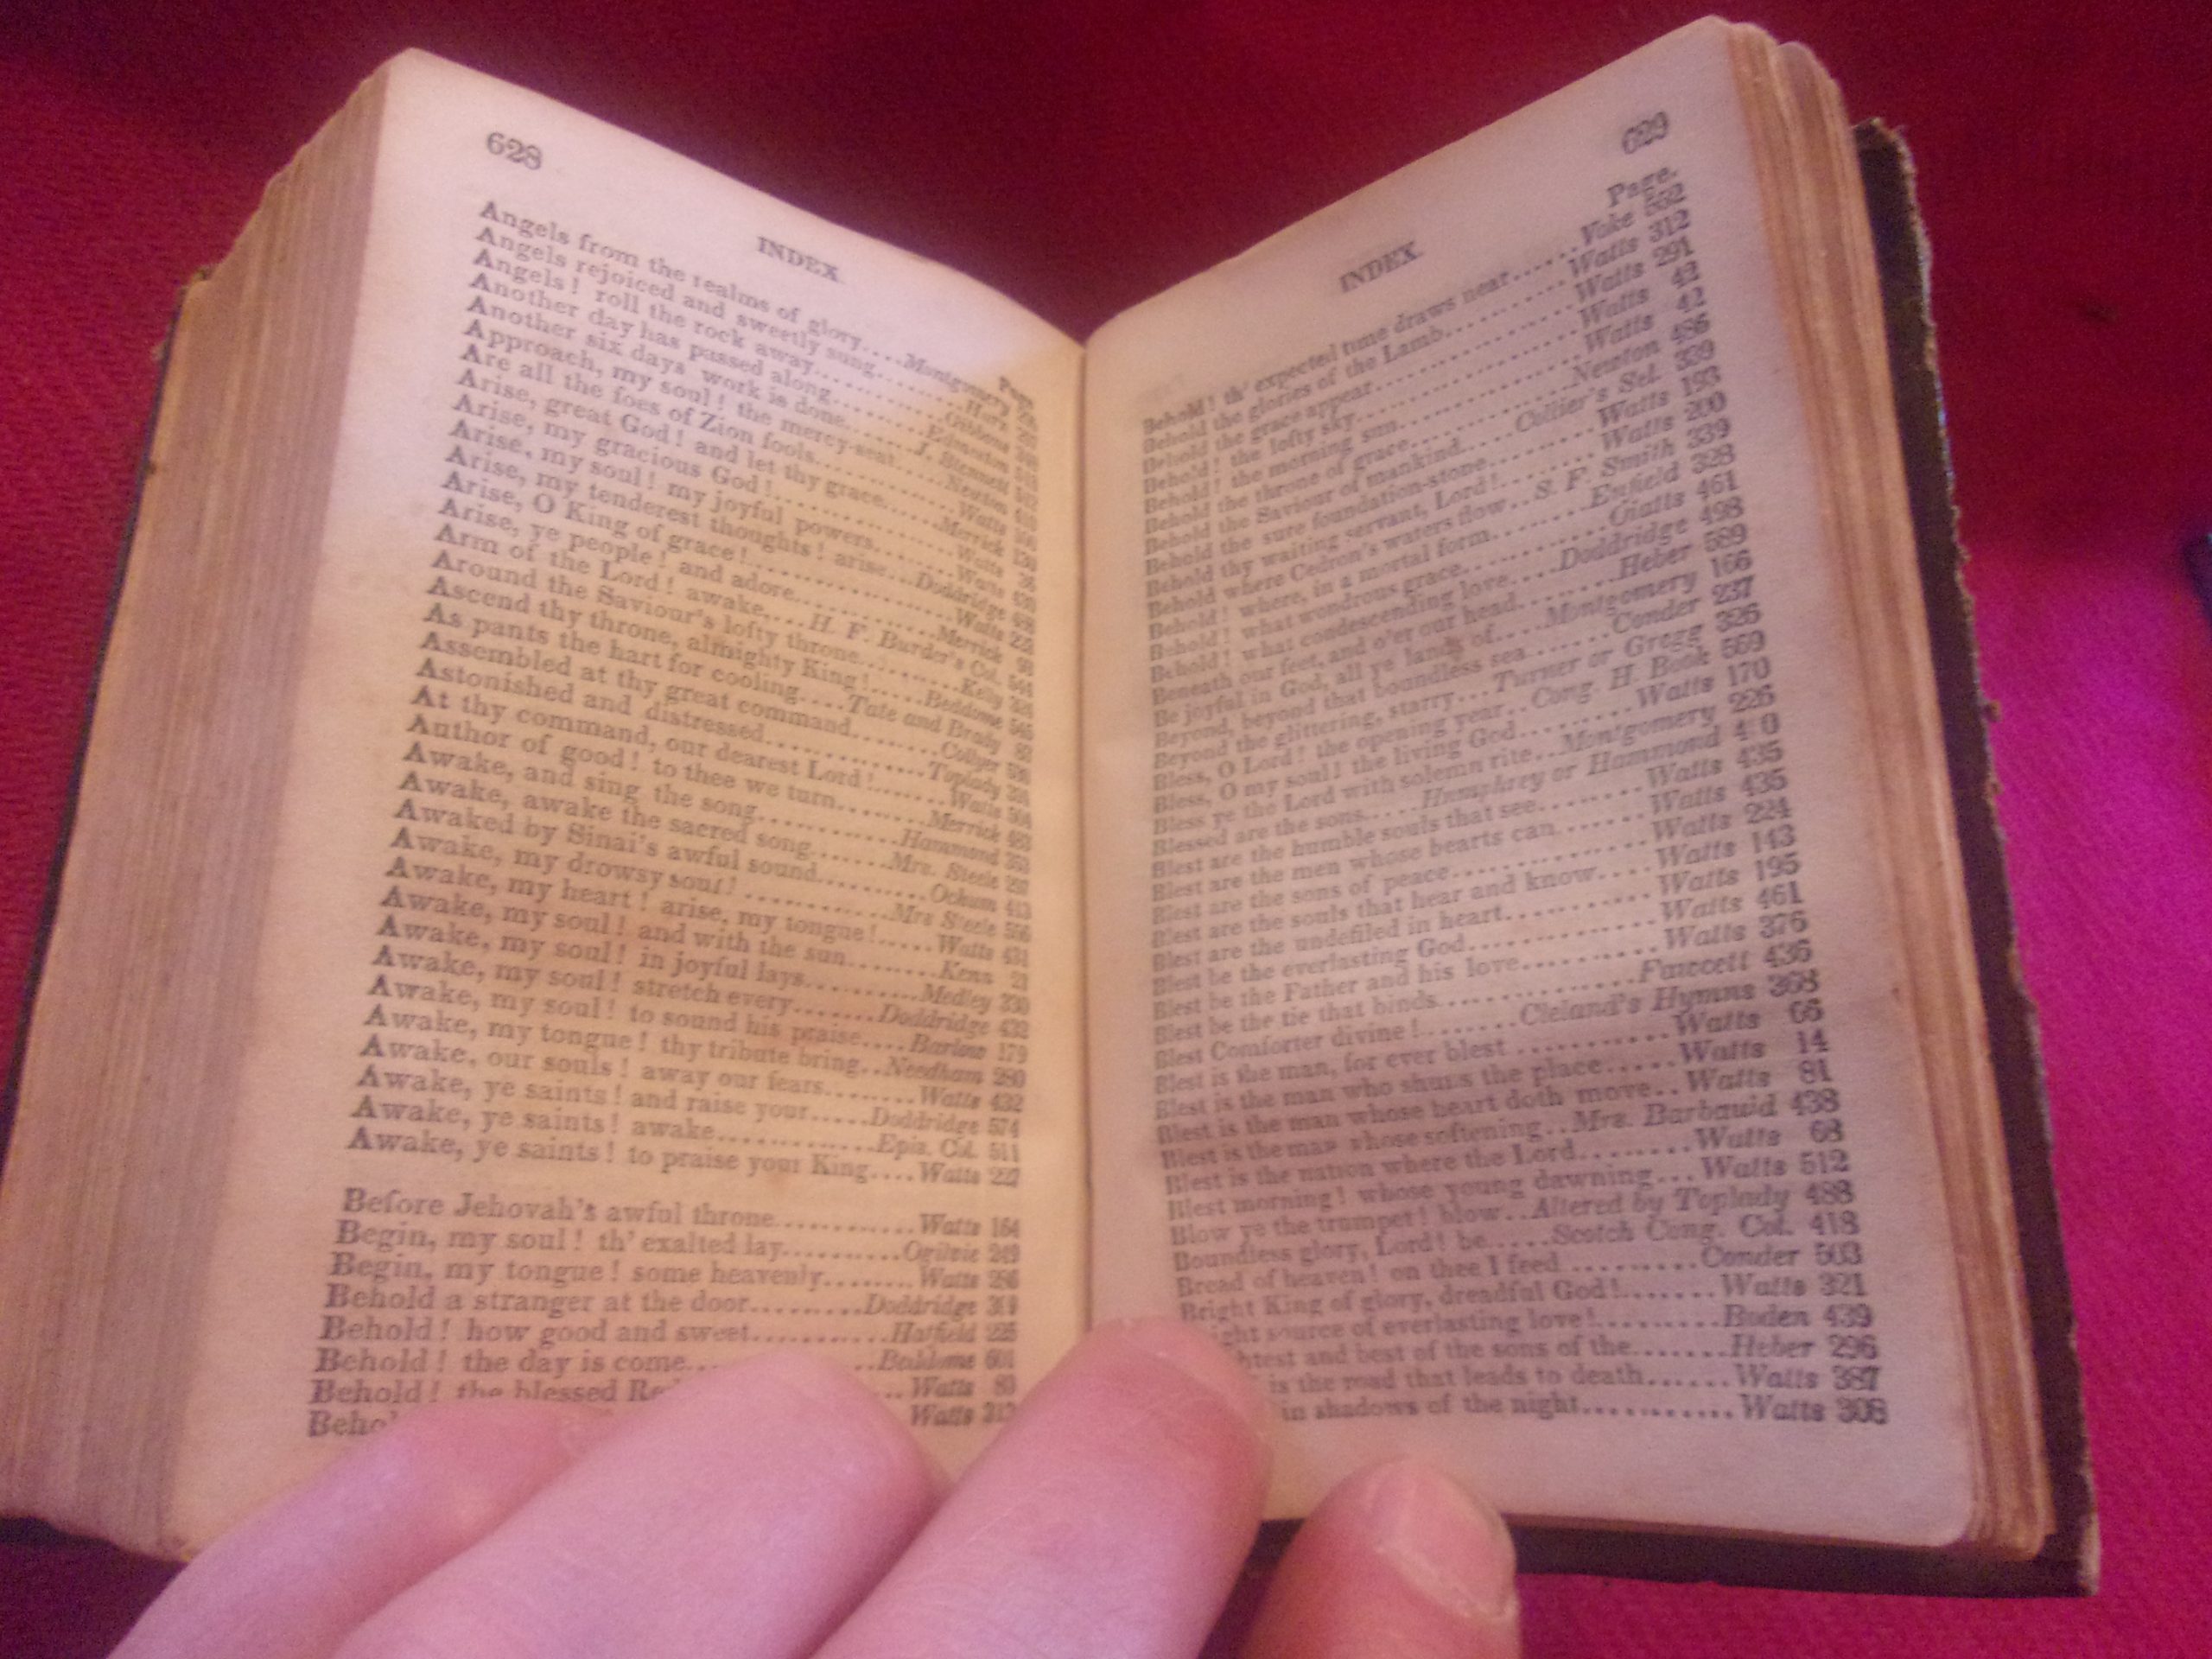 628
INDEX.
Page.
Angels from the realms of glory....Montgomery
Angels rejoiced and sweetly sung
Angels! roll the rock away............Gibbons
Another day has passed along..........Edmeston
Another six days' work is done........J. Stennett
Approach, my soul! the mercy-seat.......Newton
Are all the foes of Zion fools..........Watts
Arise, great God! and let thy grace......Merrick
Arise, my gracious God!..........Watts
Arise, my soul! my joyful powers........Watts
Arise, my tenderest thoughts! arise...Doddridge
Arise, O King of grace!..........Watts
Arise, ye people! and adore..........Merrick
Arm of the Lord! awake....H. F. Burder's Col.
Around the Saviour's lofty throne........Kelly
Ascend thy throne, almighty King!....Beddome
As pants the hart for cooling....Tate and Brady
Assembled at thy great command........Collyer
Astonished and distressed............Toplady
At thy command, our dearest Lord!.......Watts
Author of good! to thee we turn........Merrick
Awake, and sing the song............Hammond
Awake, awake the sacred song.......Mrs. Steele
Awaked by Sinai's awful sound..........Ockum 413
Awake, my drowsy soul!............Mrs Steele
Awake, my heart! arise, my tongue!.....Watts 431
Awake, my soul! and with the sun........Kenn 21
Awake, my soul! in joyful lays..........Medley 330
Awake, my soul! stretch every.......Doddridge 432
Awake, my soul! to sound his praise....Barlow 179
Awake, my tongue! thy tribute bring..Needham 280
Awake, our souls! away our fears........Watts 432
Awake, ye saints! and raise your.....Doddridge 574
Awake, ye saints! awake............Epis. Col. 511
Awake, ye saints! to praise your King....Watts 227
Before Jehovah's awful throne............Watts 164
Begin, my soul! th' exalted lay..........Ogilvie 249
Begin, my tongue! some heavenly........Watts 286
Behold a stranger at the door.........Doddridge
Behold! how good and sweet..........Hatfield 225
Behold! the day is come............Beddome 601
Behold! the blessed ..Watts
Watts 313
629
INDEX.
Page.
Behold! th' expected time draws near......Voke 552
Behold the glories of the Lamb..........Watts 312
Behold the grace appear..........Watts 291
Behold! the lofty sky..........Watts 42
Behold! the morning sun..........Watts 42
Behold the throne of grace..........Newton 486
Behold the Saviour of mankind....Collier's Sel. 339
Behold the sure foundation-stone........Watts 193
Behold thy waiting servant, Lord!.......Watts 200
Behold where Cedron's waters flow..S. F. Smith 339
Behold! where, in a mortal form........Enfield 328
Behold! what wondrous grace..........Watts 461
Behold! what condescending love....Doddridge 498
Beneath our feet, and o'er our head.......Heber 589
Be joyful in God, all ye lands of....Montgomery 166
Beyond, beyond that boundless sea.....Conder 237
Beyond the glittering, starry...Turner or Gregg 326
Bless, O Lord! the opening year..Cong. H. Book 569
Bless, O my soul! the living God.........Watts 170
Bless ye the Lord with solemn rite...Montgomery 226
Blessed are the sons....Humphrey or Hammond 4 0
Blest are the humble souls that see.........Watts 435
Blest are the men whose hearts can.......Watts 435
Blest are the sons of peace.............Watts 224
Blest are the souls that hear and know....Watts 143
Blest are the undefiled in heart...........Watts 195
Blest be the everlasting God..............Watts 461
Blest be the Father and his love..........Watts 376
Blest be the tie that binds..............Fawcett 436
Blest Comforter divine!........Cleland's Hymns 368
Blest is the man, for ever blest ...........Watts 66
Blest is the man who shuns the place......Watts 14
Blest is the man whose heart doth move..Watts 81
Blest is the man whose softening..Mrs. Barbauld 438
Blest is the nation where the Lord........Watts 68
Blest morning! whose young dawning...Watts 512
Blow ye the trumpet! blow..Altered by Toplady 488
Boundless glory, Lord! be.....Scotch Cong. Col. 418
Bread of heaven! on thee I feed ..........Conder 503
Bright King of glory, dreadful God!.......Watts 321
ight source of everlasting love!.........Boden 439
htest and best of the sons of the.......Heber 296
is the road that leads to death......Watts 387
in shadows of the night............Watts 308